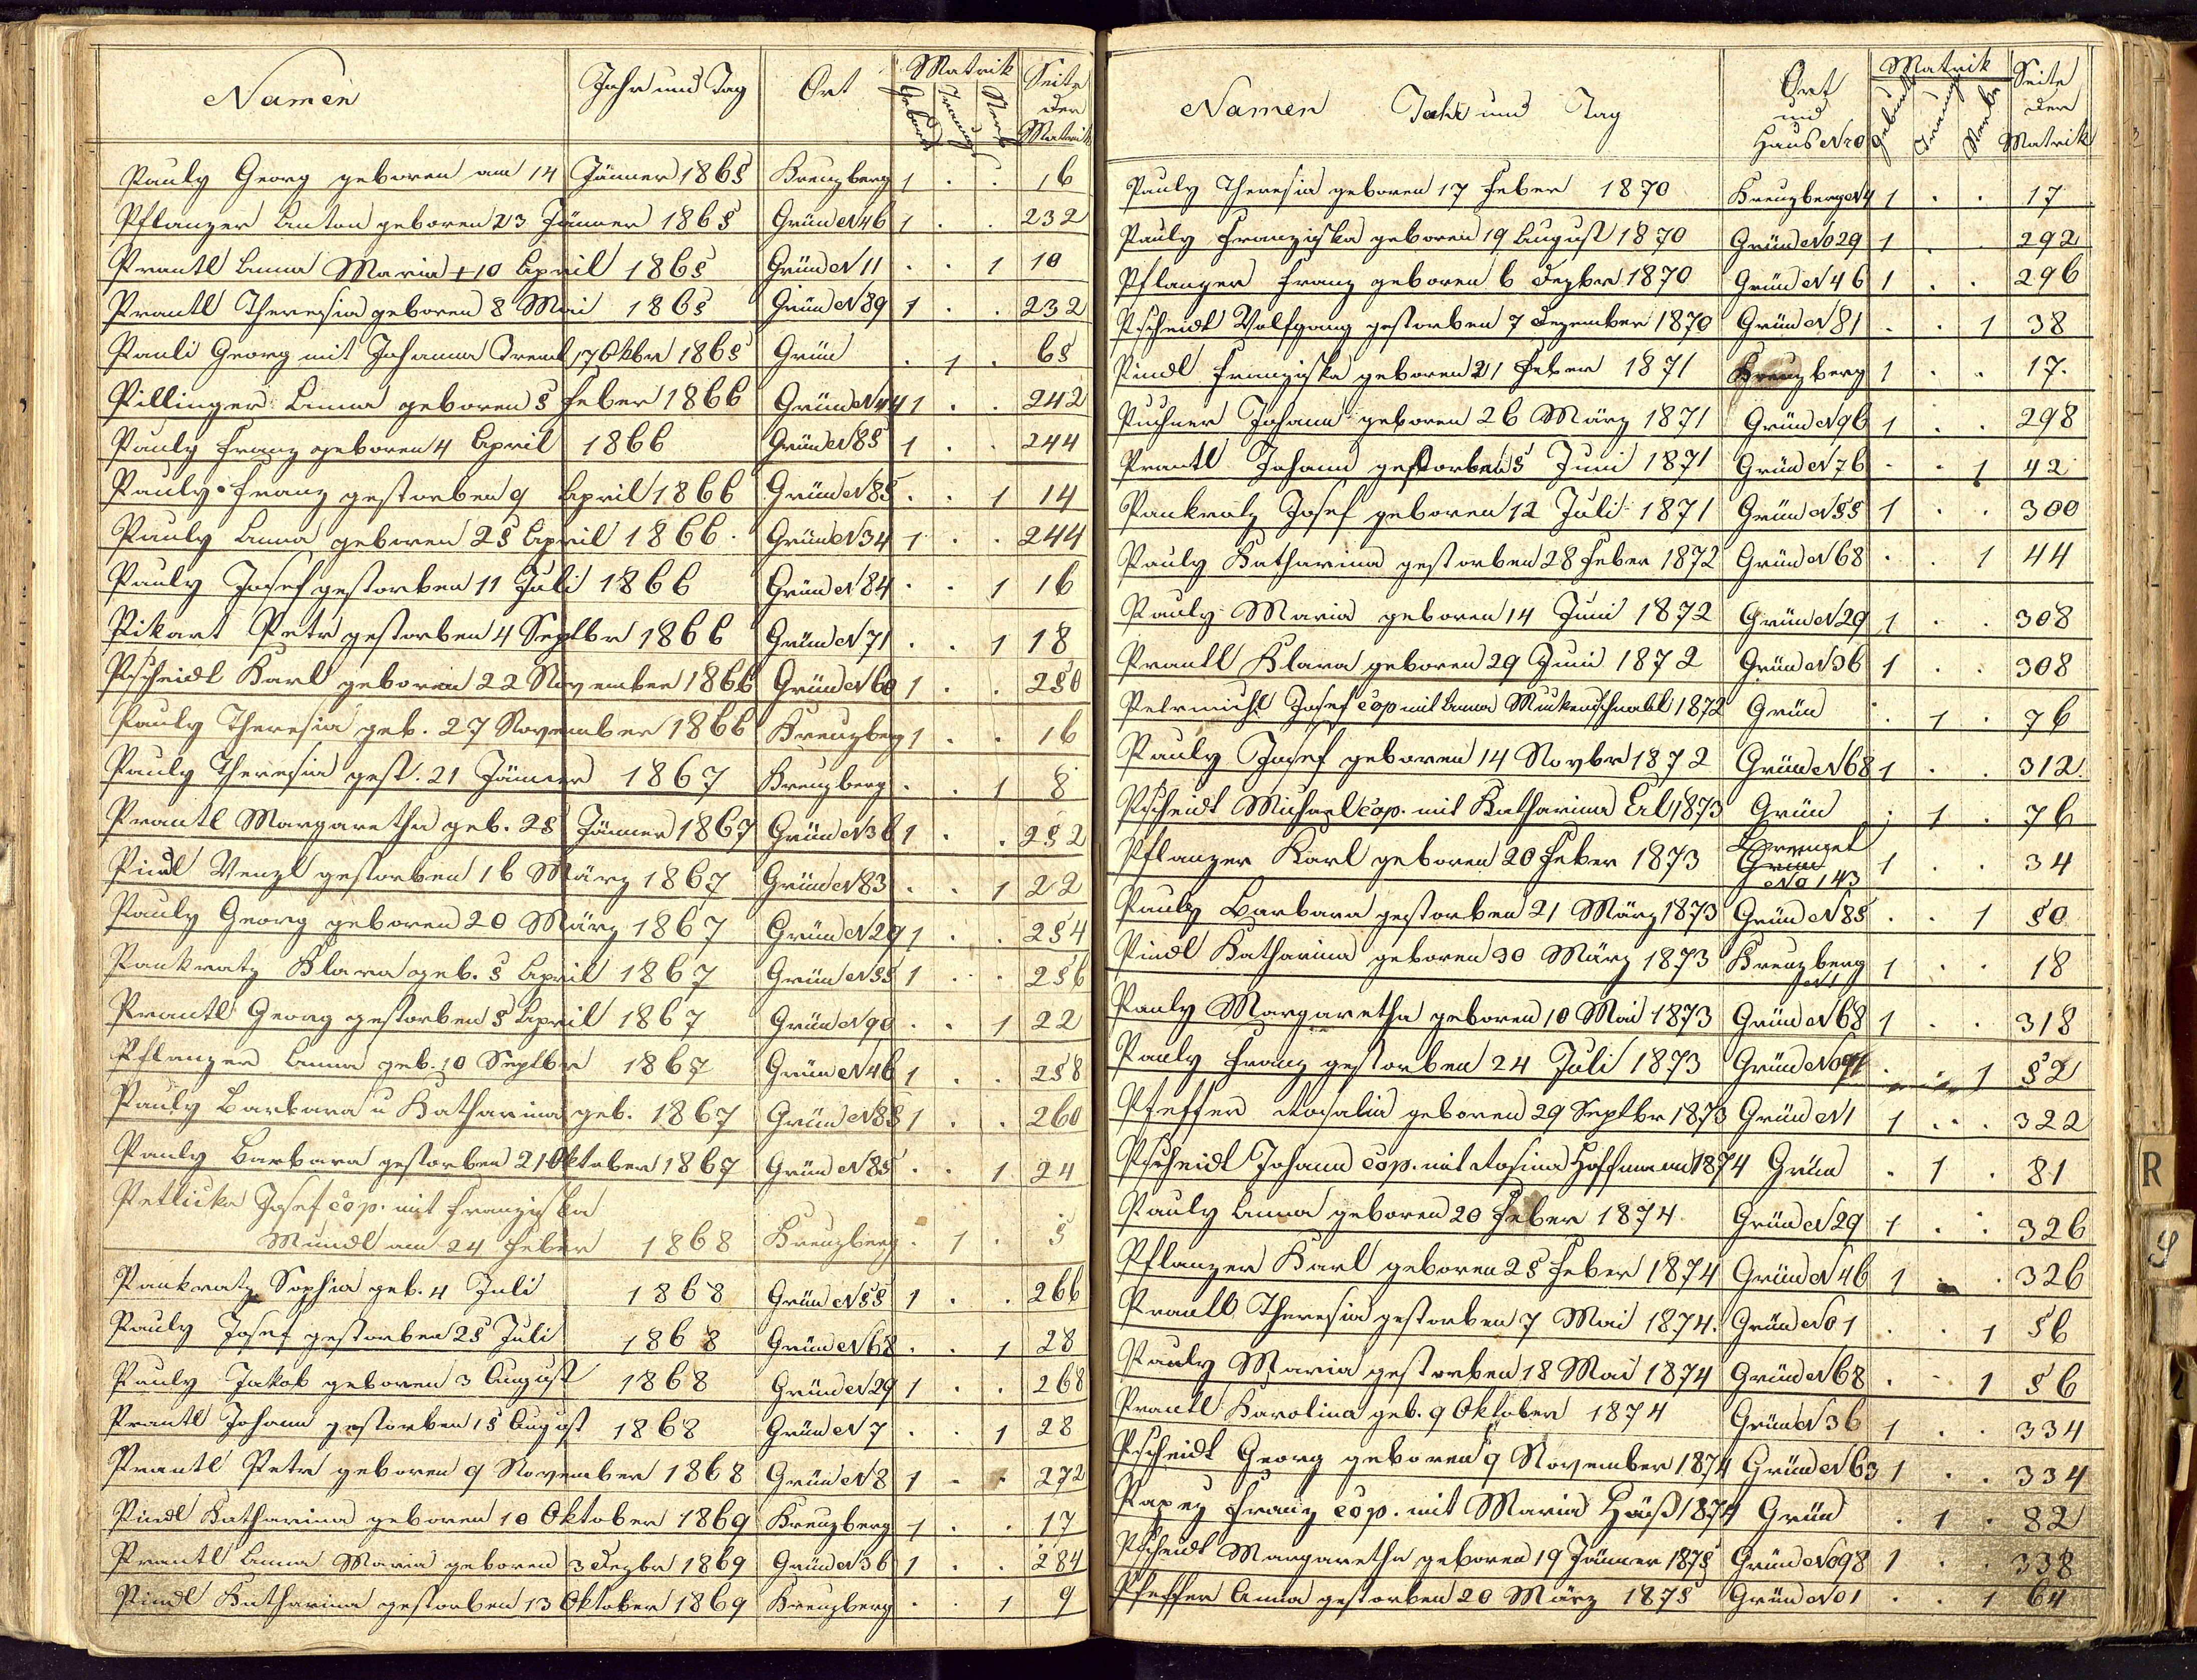 Namen Jahr und Tag Ort Matrik Seite der Matrik
Geburts Trauungs Sterb
Pauly Georg geboren am 14 Jänner 1865 Kreuzberg 1 . . 16
Pflanzer Anton geboren 23 Jänner 1865 Grün N 46 1 . . 232
Prantl Anna Maria + 10 April 1865 Grün N 11 . . 1 10
Prantl Theresia geboren 8 Mai 1865 Grün N 89 1 . . 232
Pauli Georg mit Johanna Treml 17 Oktbr 1865 Grün . 1 . 65
Pillinger Anna geboren 5 Feber 1866 Grün N 44 1 . . 242
Pauly Franz geboren 4 April 1866 Grün N 85 1 . . 244
Pauly Franz gestorben 9 April 1866 Grün N 85 . . 1 14
Pauly Anna geboren 25 April 1866. Grün N 34 1 . . 244
Pauly Josef gestorben 11 Juli 1866 Grün N 84 . . 1 16
Pikart Petr gestorben 4 Septbr 1866 Grün N 71 . . 1 18
Pscheidt Karl geboren 22 November 1866 Grün N 60 1 . . 250
Pauly Theresia geb. 27 November 1866 Kreuzberg 1 . . 16
Pauly Theresia gest. 21 Jänner 1867 Kreuzberg . . 1 8
Prantl Margaretha geb. 25 Jänner 1867 Grün N 36 1 . . 252
Pindl Wenzl gestorben 16 März 1867 Grün N 83 . . 1 22
Pauly Georg geboren 20 März 1867 Grün N 29 1 . . 254
Pankratz Klara geb. 5 April 1867 Grün N 55 1 . . 256
Prantl Georg gestorben 5 April 1867 Grün N 90 . . 1 22
Pflanzer Anna geb. 10 Septbr 1867 Grün N 46 1 . . 258
Pauly Barbara u Katharina geb. 1867 Grün N 85 1 . . 260
Pauly Barbara gestorben 21 Oktober 1867 Grün N 85 . . 1 24
Petlicka Josef cop. mit Franziska
Mundl am 24 Feber 1868 Kreuzberg . 1 . 5
Pankratz Sophia geb. 4 Juli 1868 Grün N 55 1 . . 266
Pauly Josef gestorben 25 Juli 1868 Grün N 68 . . 1 28
Pauly Jakob geboren 3 August 1868 Grün N 29 1 . . 268
Prantl Johann gestorben 15 August 1868 Grün N 7 . . 1 28
Prantl Petr geboren 9 November 1868 Grün N 8 1 . . 272
Pindl Katharina geboren 10 Oktober 1869 Kreuzberg 1 . . 17
Prantl Anna Maria geboren 3 Dezbr 1869 Grün N 36 1 . . 284
Pindl Katharina gestorben 13 Oktober 1869 Kreuzberg . . 1 9
Namen Jahr und Tag Ort und Haus Nro Matrik Seite der Matrik
Geburts Trauungs Sterbe
Pauly Theresia geboren 17 Feber 1870 Kreuzberg N 4 1 . . 17
Pauly Franziska geboren 19 August 1870 Grün No 29 1 . . 292
Pflanzer Franz geboren 6 Dezbr 1870 Grün N 46 1 . . 296
Pscheidt Wolfgang gestorben 7 Dezember 1870 Grün N 81 . . 1 38
Pindl Franziska geboren 21 Feber 1871 Kreuzberg 1 . . 17.
Puchner Johann geboren 26 März 1871 Grün N 96 1 . . 298
Prantl Johann gestorben 5 Juni 1871 Grün N 76 . . 1 42
Pankratz Josef geboren 12 Juli 1871 Grün N 55 1 . . 300
Pauly Katharina gestorben 28 Feber 1872 Grün N 68 . . 1 44
Pauly Maria geboren 14 Juni 1872 Grün N 29 1 . . 308
Prantl Klara geboren 29 Juni 1872 Grün N 36 1 . . 308
Petermichl Josef cop mit Anna Muckenschnabl 1872 Grün . 1 . 76
Pauly Josef geboren 14 Novbr 1872 Grün N 68 1 . . 312.
Pscheidt Michael cop. mit Katharina Erl 1873 Grün . 1 . 76
Pflanzer Karl geboren 20 Feber 1873 Grün No 143 1 . . 34
Pauly Barbara gestorben 21 März 1873 Grün N 85 . . 1 50
Pindl Katharina geboren 30 März 1873 Kreuzberg N 1 1 . . 18
Pauly Margaretha geboren 10 Mai 1873 Grün N 68 1 . . 318
Pauly Franz gestorben 24 Juli 1873 Grün No . . 1 52
Pfeffer Rosalia geboren 29 Septbr 1873 Grün N 1 1 . . 322
Pscheidt Johann cop. mit Rosina Hoffmann 1874 Grün . 1 . 81
Pauly Anna geboren 20 Feber 1874 Grün N 29 1 . . 326
Pflanzer Karl geboren 25 Feber 1874 Grün N 46 1 . . 326
Prantl Theresia gestorben 7 Mai 1874. Grün No 1 . . 1 56
Pauly Maria gestorben 18 Mai 1874 Grün N 68 . . 1 56
Prantl Karolina geb. 9 Oktober 1874 Grün N 36 1 . . 334
Pscheidt Georg geboren 9 November 1874 Grün N 63 1 . . 334
Papey Franz cop. mit Maria Häuß 1874 Grün . 1 . 82
Pscheidt Margaretha geboren 19 Jänner 1875 Grün No 98 1 . . 338
Pfeffer Anna gestorben 20 März 1875 Grün No 1 . . 1 64
R
S